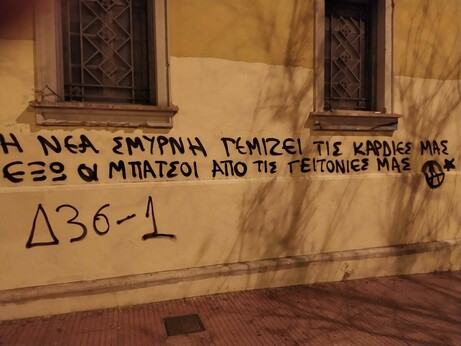 Η ΝΕΑ ΣΜΥΡΝΗ ΓΕΜΙΖΕΙ ΤΙΣ ΚΑΡΔΙΕΣ ΜΑΣ
ΕΞΩ ΟΙ ΜΠΑΤΣΟΙ ΑΠΟ ΤΙΣ ΓΕΙΤΟΝΙΕΣ ΜΑΣ
Δ36-1